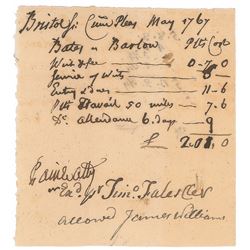 Bristol Ss: Com̄ Pleas May 1767
Bates v Barlow Plts Cost
Writ & fee 0-7-0
Service of Writ 8
Entry 2 days 11-6
Plt Travail 50 miles 7-6
Do. attendance 6 days 9
£ 2.0
Timo. Fales Cler
allowed James Williams